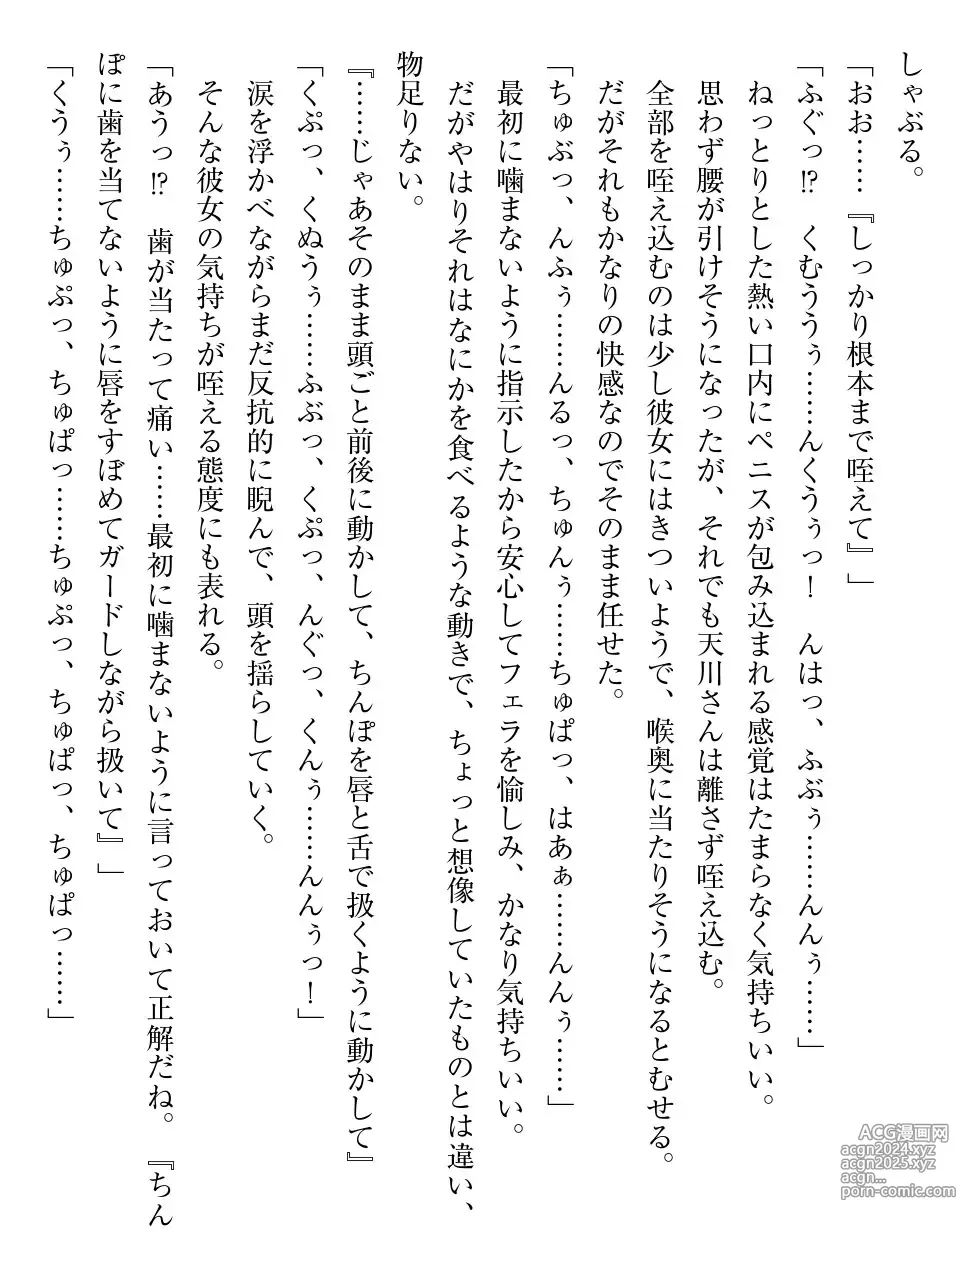 しゃぶる。
「おお……『しっかり根本まで咥えて』」
「ふぐっ!?　くむうぅ……んくうぅっ！　んはっ、ふぶぅ……んんぅ……」
ねっとりとした熱い口内にペニスが包み込まれる感覚はたまらなく気持ちいい。
思わず腰が引けそうになったが、それでも天川さんは離さず咥え込む。
全部を咥え込むのは少し彼女にはきついようで、喉奥に当たりそうになるとむせる。
だがそれもかなりの快感なのでそのまま任せた。
「ちゅぶっ、んふぅ……んるっ、ちゅんぅ……ちゅぱっ、はあぁ……んんぅ……」
最初に噛まないように指示したから安心してフェラを愉しみ、かなり気持ちいい。
だがやはりそれはなにかを食べるような動きで、ちょっと想像していたものとは違い、
物足りない。
『……じゃあそのまま頭ごと前後に動かして、ちんぽを唇と舌で扱くように動かして』
「くぷっ、くぬうぅ……ふぶっ、くぷっ、んぐっ、くんぅ……んんぅっ！」
涙を浮かべながらまだ反抗的に睨んで、頭を揺らしていく。
そんな彼女の気持ちが咥える態度にも表れる。
「あうっ!?　歯が当たって痛い……最初に噛まないように言っておいて正解だね。『ちん
ぽに歯を当てないように唇をすぼめてガードしながら扱いて』」
「くうぅ……ちゅぷっ、ちゅぱっ……ちゅぷっ、ちゅぱっ、ちゅぱっ……」
ACG漫画网
acgn2024.xyz
acgn2025.xyz
acgn...
porn-comic.com